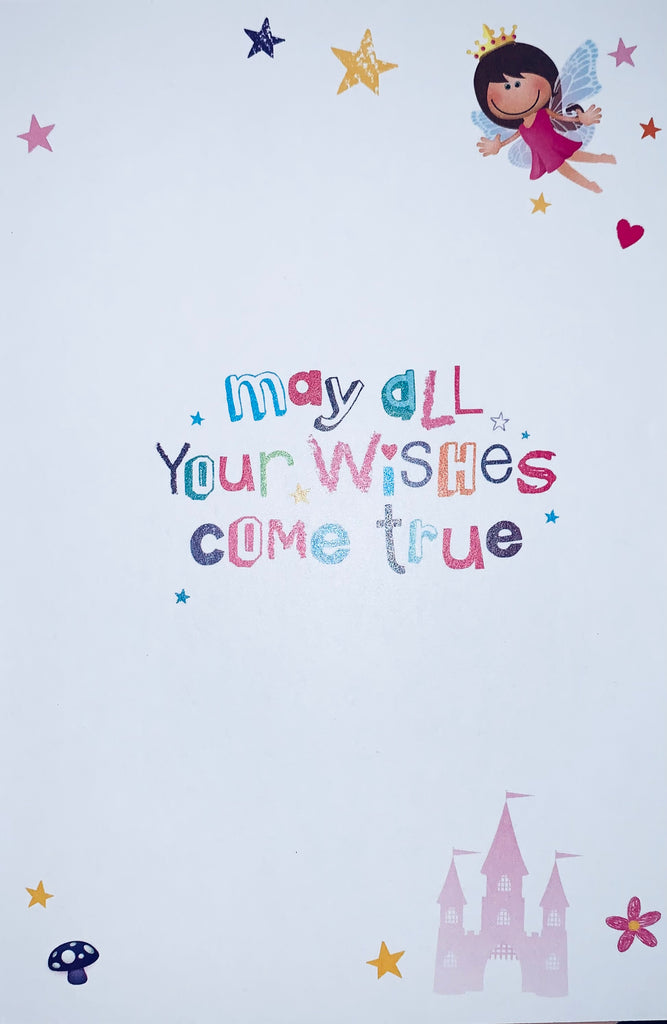 may aLL
Your WisHes
come true